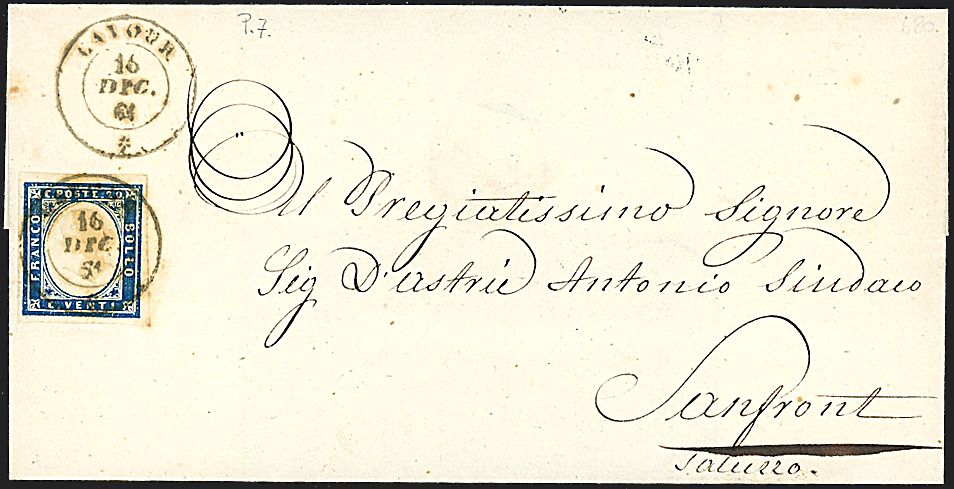 P.7.
680.
CAVOUR
16
DIC.
61
C. POSTE 20
FRANCO
BOLLO
C. VENTI
16
DIC.
61
Al Pregiatissimo Signore
Sig D'astrie Antonio Sindaco
Sanfront
Saluzzo.